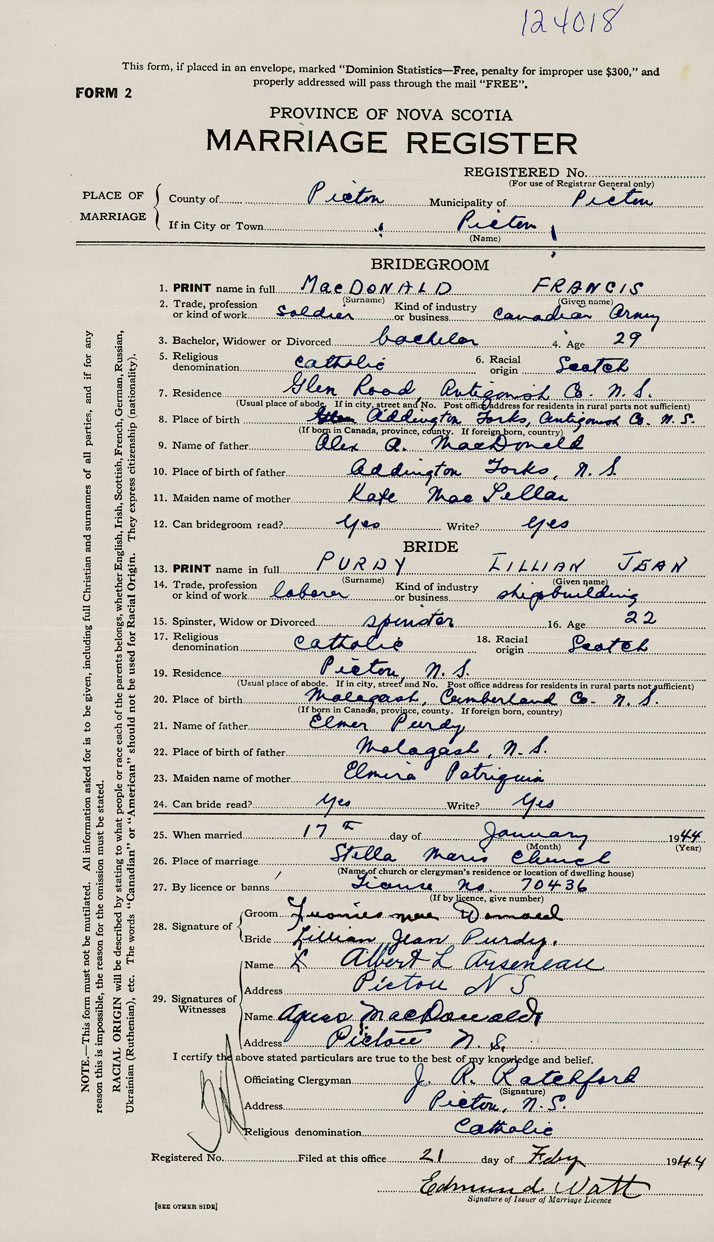 124018
This form, if placed in an envelope, marked "Dominion Statistics—Free, penalty for improper use $300," and
properly addressed will pass through the mail "FREE".
FORM 2
PROVINCE OF NOVA SCOTIA
MARRIAGE REGISTER
REGISTERED No.
(For use of Registrar General only)
PLACE OF MARRIAGE
County of Pictou Municipality of Pictou
If in City or Town Pictou
(Name)
BRIDEGROOM
1. PRINT name in full MacDONALD FRANCIS
(Surname) (Given name)
2. Trade, profession or kind of work soldier Kind of industry or business Canadian Army
3. Bachelor, Widower or Divorced bachelor 4. Age 29
5. Religious denomination catholic 6. Racial origin Scotch
7. Residence Glen Road, Antigonish Co. N.S.
(Usual place of abode. If in city, street and No. Post office address for residents in rural parts not sufficient)
8. Place of birth Addington Forks, Antigonish Co. N.S.
(If born in Canada, province, county. If foreign born, country)
9. Name of father Alex A. MacDonald
10. Place of birth of father Addington Forks, N.S.
11. Maiden name of mother Kate MacLellan
12. Can bridegroom read? Yes Write? Yes
BRIDE
13. PRINT name in full PURDY LILLIAN JEAN
(Surname) (Given name)
14. Trade, profession or kind of work laborer Kind of industry or business shipbuilding
15. Spinster, Widow or Divorced spinster 16. Age 22
17. Religious denomination catholic 18. Racial origin Scotch
19. Residence Pictou, N.S.
(Usual place of abode. If in city, street and No. Post office address for residents in rural parts not sufficient)
20. Place of birth Malagash, Cumberland Co. N.S.
(If born in Canada, province, county. If foreign born, country)
21. Name of father Elmer Purdy
22. Place of birth of father Malagash, N.S.
23. Maiden name of mother Elmira Patriquin
24. Can bride read? Yes Write? Yes
25. When married 17th day of January 1944
(Month) (Year)
26. Place of marriage Stella Maris Church
(Name of church or clergyman's residence or location of dwelling house)
27. By licence or banns License No. 70436
(If by licence, give number)
28. Signature of
Groom Francis Mac Donald
Bride Lillian Jean Purdy.
29. Signatures of Witnesses
Name X Albert L Arseneau
Address Pictou N S
Name Agnes MacDonald
Address Pictou N.S.
I certify the above stated particulars are true to the best of my knowledge and belief.
Officiating Clergyman J. R. Ratchford
(Signature)
Address Pictou, N.S.
Religious denomination Catholic
Registered No. Filed at this office 21 day of Feby 1944
Edmund Watt
Signature of Issuer of Marriage Licence
[SEE OTHER SIDE]
NOTE.—This form must not be mutilated. All information asked for is to be given, including full Christian and surnames of all parties, and if for any
reason this is impossible, the reason for the omission must be stated.
RACIAL ORIGIN will be described by stating to what people or race each of the parents belongs, whether English, Irish, Scottish, French, German, Russian,
Ukrainian (Ruthenian), etc. The words "Canadian" or "American" should not be used for Racial Origin. They express citizenship (nationality).